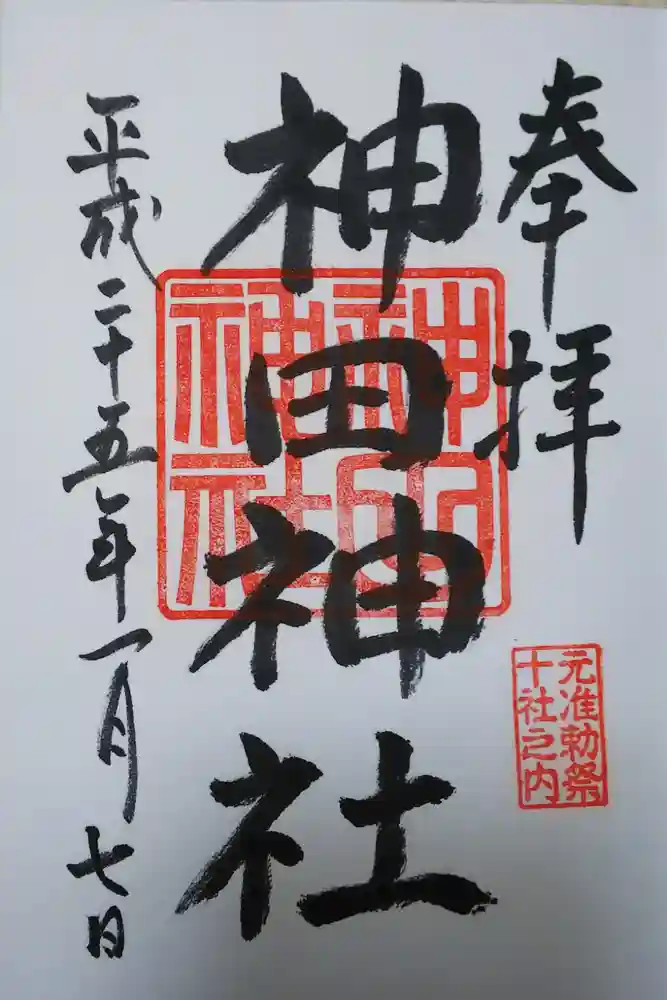 奉拝
神田神社
平成二十五年一月七日
元准勅祭
十社之内